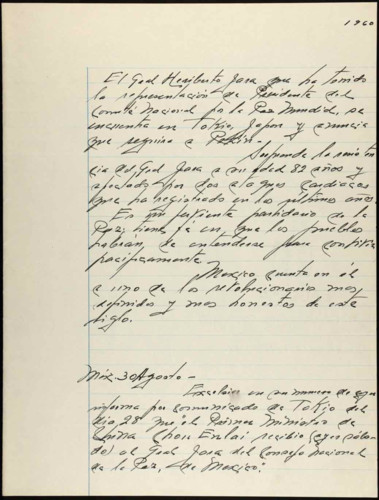 1960
El Gral Heriberto Jara que ha tenido
la representación de Presidente del
Comité Nacional por la Paz Mundial, se
encuentra en Tokio, Japon y anuncia
que seguira a Pekin.
Sorprende la resisten
cia del Gral Jara a su edad 82 años y
afectado por dos ataques cardiacos
que ha registrado en los ultimos años.
Es un ferviente partidario de la
Paz; tiene fe en que los pueblos
habran de entenderse para convivir
pacificamente.
Mexico cuenta en él
a uno de los revolucionarios mas
definidos y mas honestos de este
siglo.
Mex. 30 Agosto -
Excelsior en su numero de
informa por comunicado de Tokio del
dia 28 que el Primer Ministro de
China Chou Enlai recibio (ayer sába
do) al Gral Jara del Consejo Nacional
de la Paz, de Mexico.